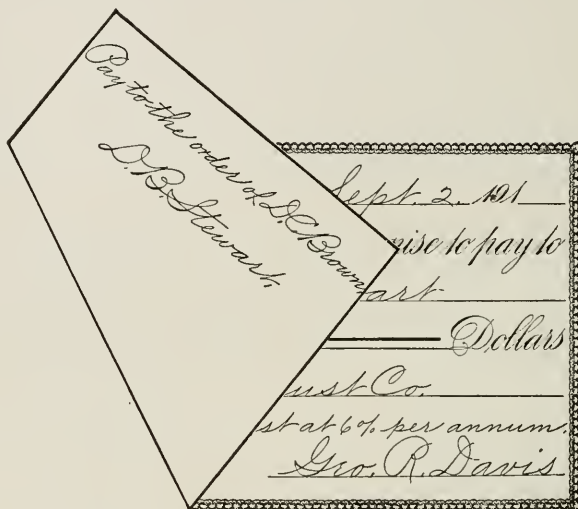 Pay to the order of D. C. Brown
D. B. Stewart.
Sept. 2, 191
nise to pay to
art
Dollars
ust Co.
st at 6% per annum.
Geo. R. Davis